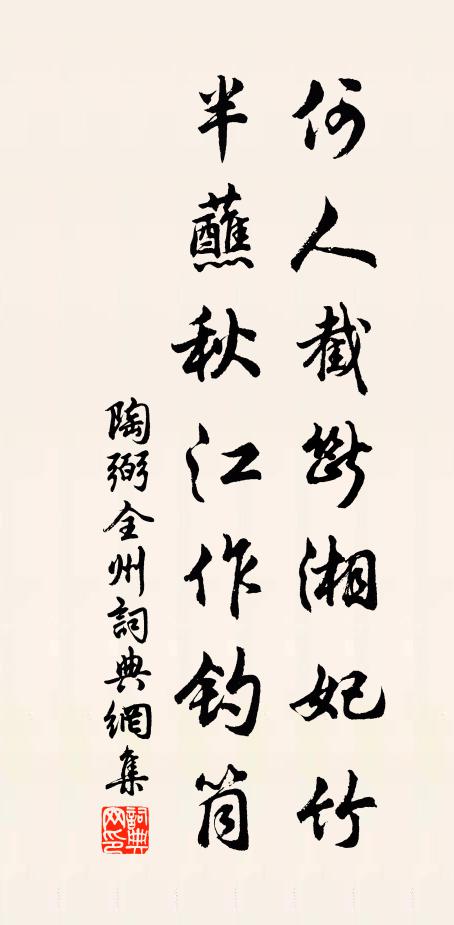 何人截斷湘妃竹
半蘸秋江作釣筒
陶弼全州詞典網集
詞典網印